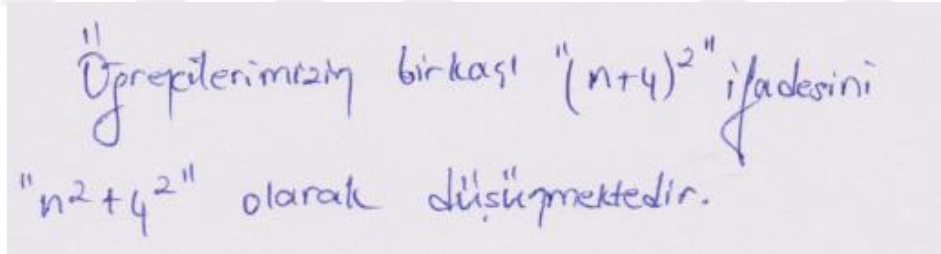 Öğrencilerimizin birkaçı "(n+4)²" ifadesini
"n²+4²" olarak düşünmektedir.